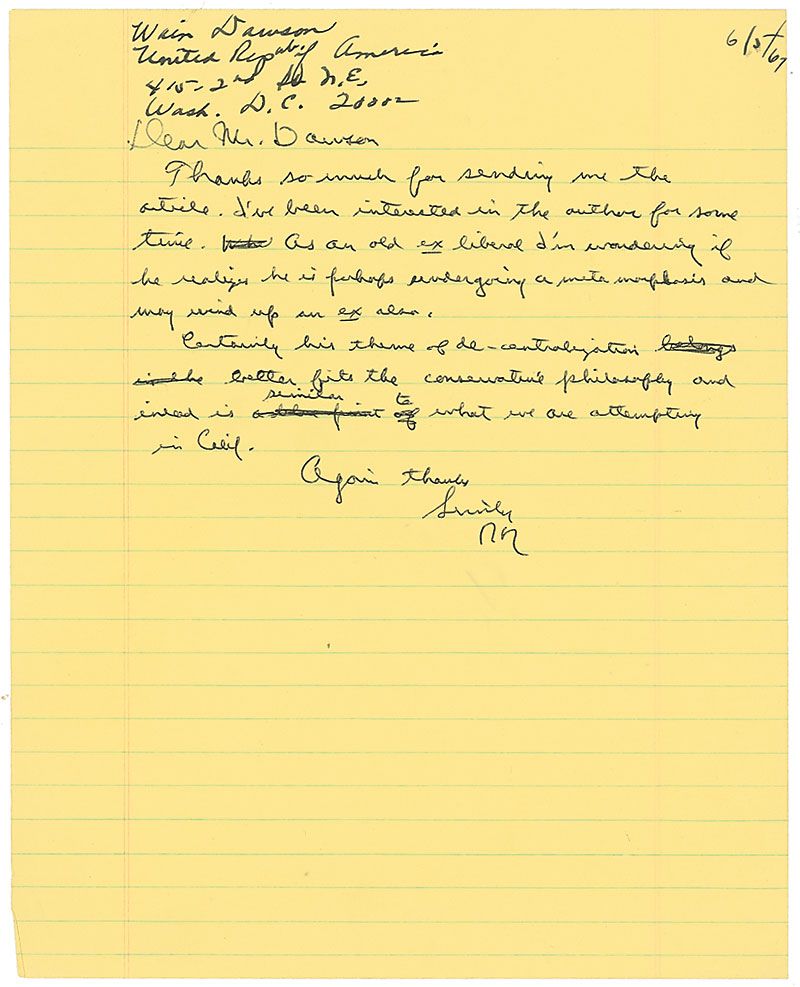 Wain Dawson
6/5/67
United Repub of America
415-2nd St N.E.
Wash. D.C. 20002
Dear Mr. Dawson
Thanks so much for sending me the
article. I've been interested in the author for some
time. As an old ex liberal I'm wondering if
he realizes he is perhaps undergoing a metamorphasis and
may wind up an ex also.
Certainly his theme of de-centralization belongs
in the better fits the conservative philosophy and
indeed is similar to what we are attempting
in Calif.
Again thanks
Sincerely
RR